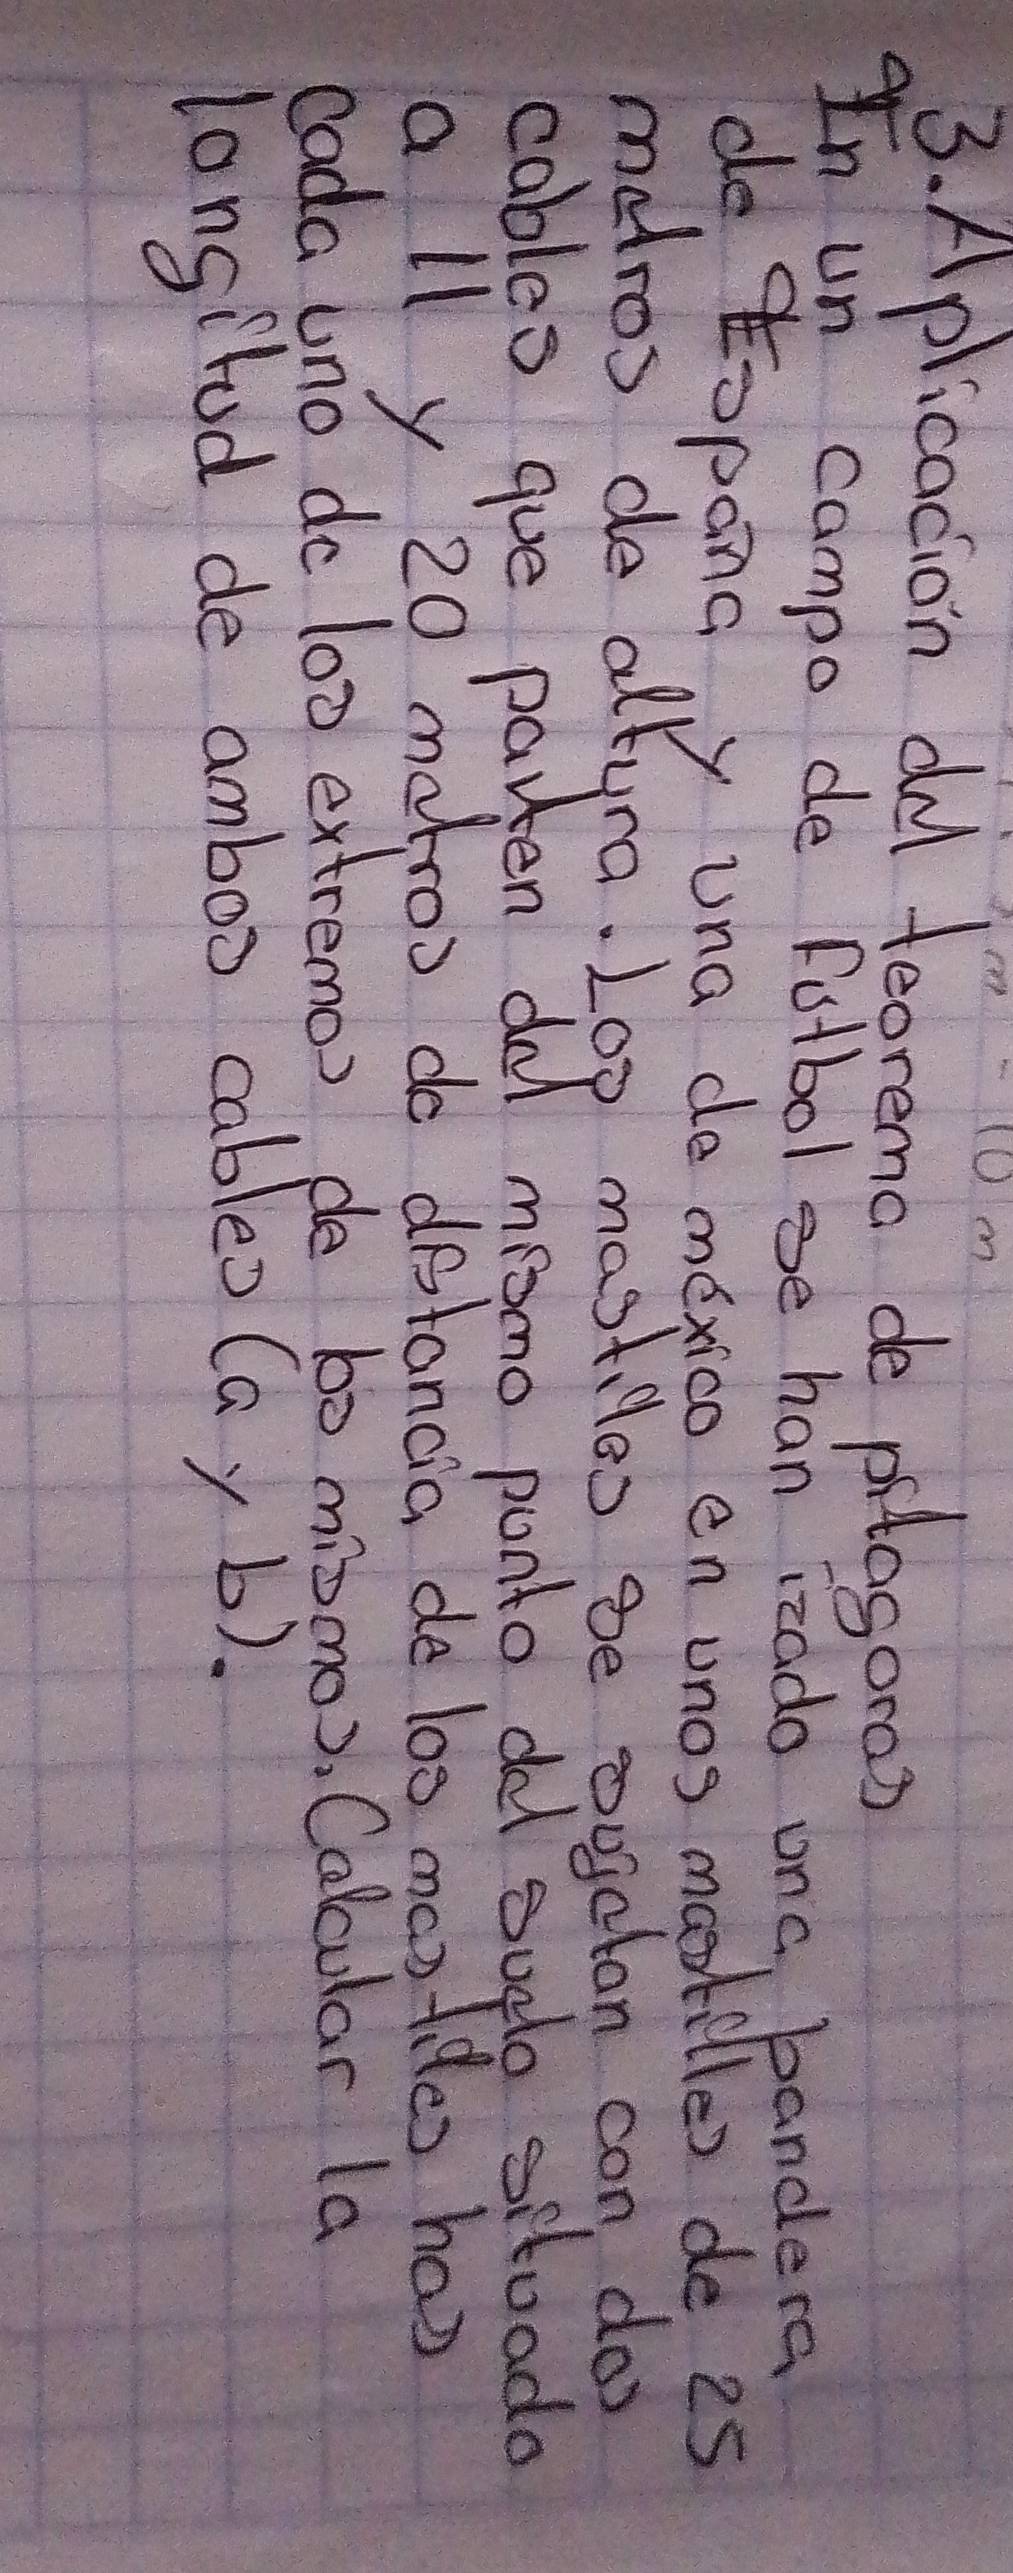 3. Aplicación del teorema de pitagoras
En un campo de futbol se han izado una bandera
de España y una de méxico en unos mastilles de 25
metros de altura. Los mastiles se sujetan con dos
cables que parten del mismo punto del suelo situado
a 11 y 20 metros de distancia de los mastiles has
cada uno de los extremos de los mismos. Calcular la
longitud de ambos cables (a y b).